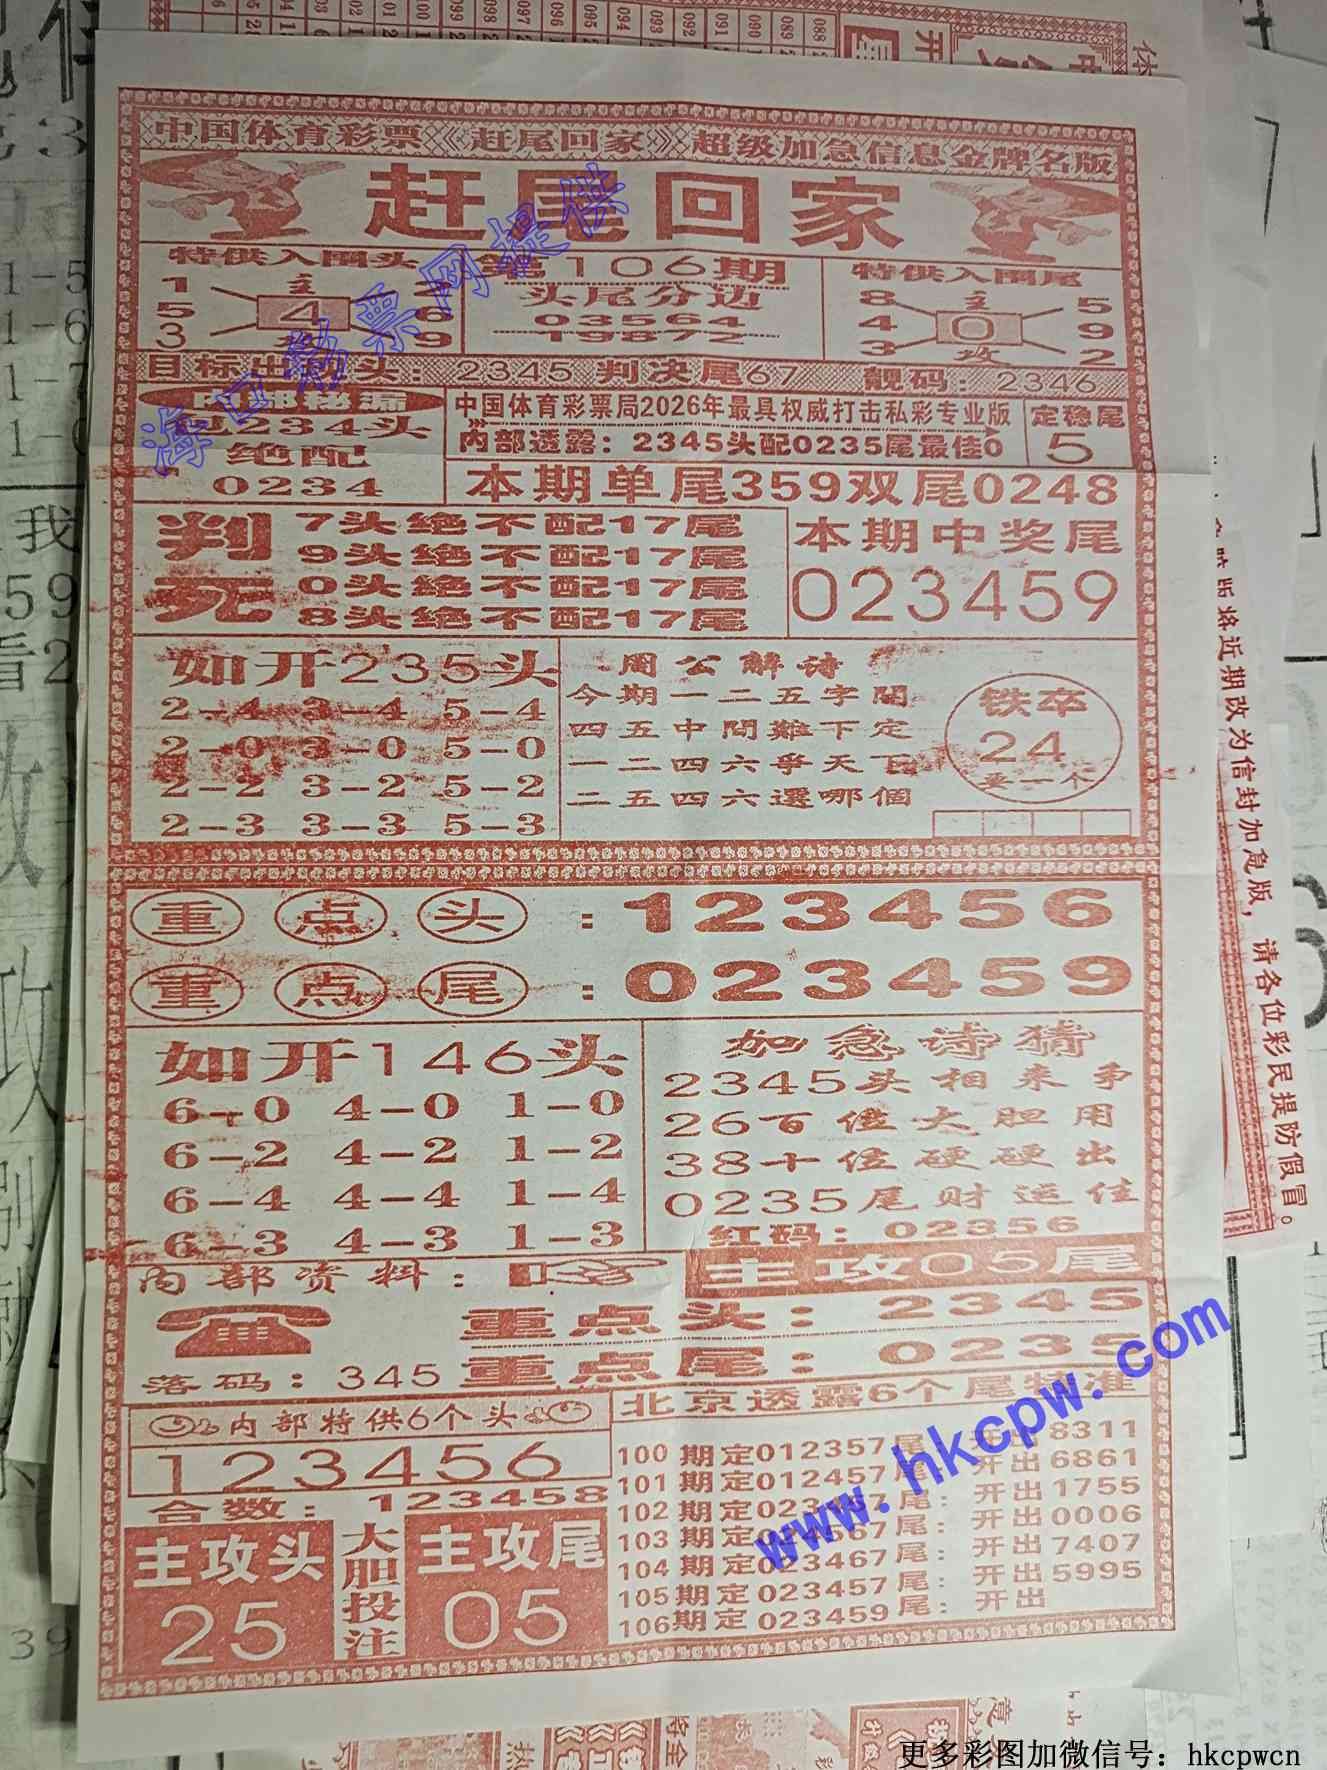 中国体育彩票《赶尾回家》超级加急信息金牌名版
赶尾回家
特供入围头
1 主
5 4 6
3 9
第106期
头尾分边
03564
19872
特供入围尾
8 主 5
4 0 9
3 攻 2
目标出 头：2345 判决尾67 靓码：2346
内部秘漏
234头
绝配
0234
中国体育彩票局2026年最具权威打击私彩专业版
内部透露：2345头配0235尾最佳0
定稳尾
5
本期单尾359双尾0248
判死
7头绝不配17尾
9头绝不配17尾
0头绝不配17尾
8头绝不配17尾
本期中奖尾
023459
如开235头
2-4 3-4 5-4
2-0 3-0 5-0
2-2 3-2 5-2
2-3 3-3 5-3
周公解诗
今期一二五字開
四五中間難下定
一二四六爭天下
二五四六還哪個
铁卒
24
要一个
重点头：123456
重点尾：023459
如开146头
6-0 4-0 1-0
6-2 4-2 1-2
6-4 4-4 1-4
6-3 4-3 1-3
加急诗猜
2345头相来争
26百位大胆用
38十位硬硬出
0235尾财运佳
红码：02356
内部资料：
主攻05尾
重点头：2345
重点尾：0235
落码：345
内部特供6个头
123456
合数：123458
主攻头
25
大胆投注
主攻尾
05
北京透露6个尾特准
100期定012357尾 开出8311
101期定012457尾 开出6861
102期定023 67尾：开出1755
103期定024567尾：开出0006
104期定023467尾：开出7407
105期定023457尾：开出5995
106期定023459尾：开出
海口彩票网提供
www.hkcpw.com
版将近期改为信封加急版，请各位彩民提防假冒。
更多彩图加微信号：hkcpwcn